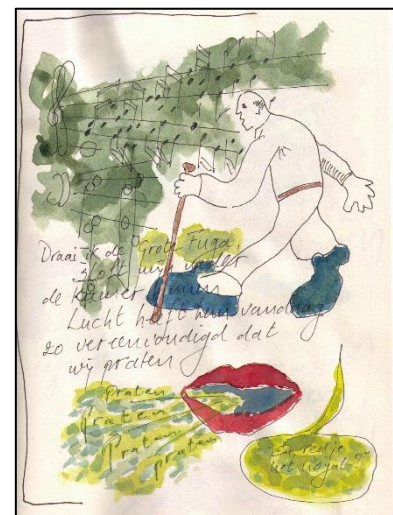 Draai ik de Grote Fuga,
sloft mijn vader
de kamer binnen
Lucht heeft hem vandaag
zo vereenvoudigd dat
wij praten
praten
praten
praten
praten
En redje
het nogal?